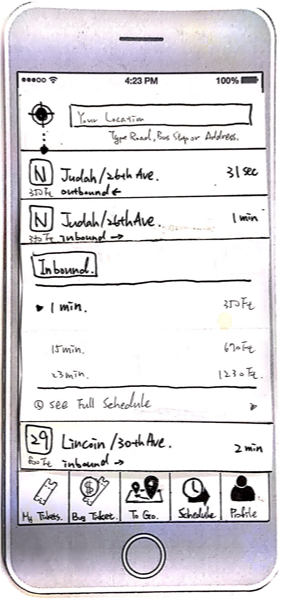 4:23 PM 100%
Your Location
Type Road, Bus Stop or Address.
N Judah/26th Ave. 31 sec
350 Ft outbound ←
N Judah/26th Ave. 1 min
350 Ft inbound →
Inbound.
1 min. 350 Ft
15 min. 690 Ft
23 min. 1230 Ft.
See Full Schedule
29 Lincoln/30th Ave. 2 min
600 Ft inbound →
My Tickets. Buy Ticket. To Go. Schedule Profile